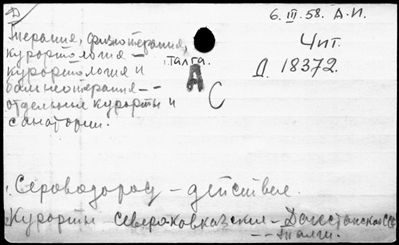 Д
6. III. 58. А.И.
Терапия, физиотерапия,
курортология —
курортология и
бальнеотерапия --
отдельные курорты и
санатории.
Талга.
А
С
Чит.
Д. 18372.
Сероводород – действие.
Курорты Северо-кавказские – Дагестанская
-- Талги.